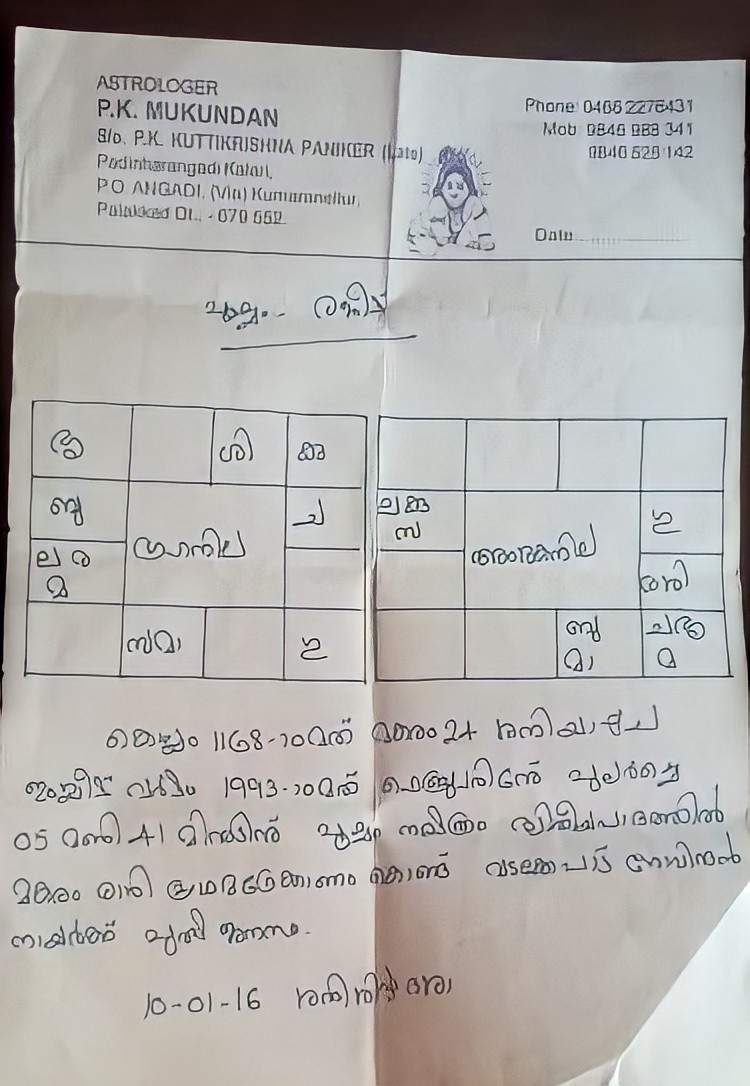 ASTROLOGER
P.K. MUKUNDAN
S/o. P.K. KUTTIKRISHNA PANIKER (Late)
Padinharangadi Kalari,
P.O ANGADI, (Via) Kumaranellur,
Palakkad Dt., - 679 552
Phone: 0466 2276431
Mob: 9846 988 341
9846 528 142
Date
പൂയം - രഞ്ജിഷ്
ശു ശി കു
ബു ച
ല ര
മ
ഗ്രഹനില
സ മാ ഗു
ല കു
സ ഗു
അംശകനില
ര ശി
ബു ച ശു
മാ മ
കൊല്ലം 1168-ാമത് മകരം 24 ശനിയാഴ്ച
ഇംഗ്ലീഷ് വർഷം 1993-ാമത് ഫെബ്രുവരി പുലർച്ചെ
05 മണി 41 മിനുട്ടിന് പൂയം നക്ഷത്രം പാദത്തിൽ
മകരം രാശി പ്രഥമദ്രേക്കാണം കൊണ്ട് വടക്കേപാട്ട്
നായർക്ക് പുത്രി ജനനം.
10-01-16 ശനി ദശാ